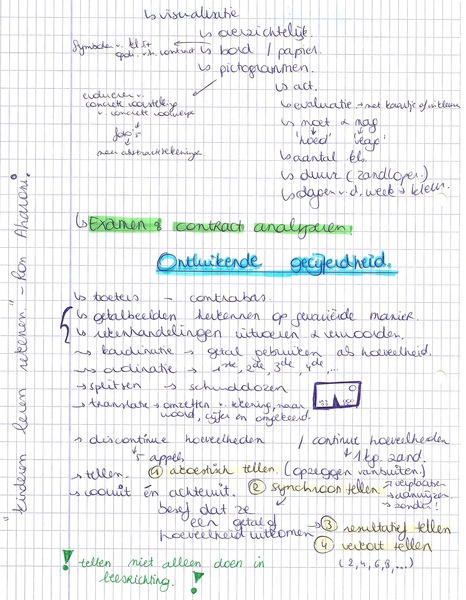 ↳ visualisatie
↳ overzichtelijk.
↳ bord / papier.
symbolen v. kl. st
opdr. v.h. contract
↳ pictogrammen.
↳ act.
evolueren v.
concrete voorstelling
v. concrete voorwerpen
↓
foto's
↓
naar abstracte tekeningen
↳ evaluatie →
↳ moet & mag
'hoed' 'vlag'
↳ aantal kl.
↳ duur (zandloper.)
↳ dagen v.d. week → kleur.
↳ Examen: contract analyseren.
Ontluikende gecijferdheid.
↳ toeters – contrabas.
↳ getalbeelden herkennen op gevarieerde manier.
↳ rekenhandelingen uitvoeren & verwoorden.
→ kardinatie → getal gebruiken als hoeveelheid.
→ ordinatie → 1ste, 2de, 3de, 4de, ...
→ splitsen → schuddozen
→ translatie → omzetten v. tekening naar
woord, cijfer en omgekeerd.
→ discontinue hoeveelheden / continue hoeveelheden
5 appels 1 kp. zand.
→ tellen. ① akoestisch tellen. (opzeggen van buiten.)
→ vooruit én achteruit. ② synchroon tellen → verplaatsen
→ aanwijzen.
→ zonder!
besef dat ze
een getal of
hoeveelheid uitkomen → ③ resultatief tellen
④ verkort tellen
(2, 4, 6, 8, ...)
! tellen niet alleen doen in
leesrichting. !
"kinderen leren rekenen" – Ron Aharoni.